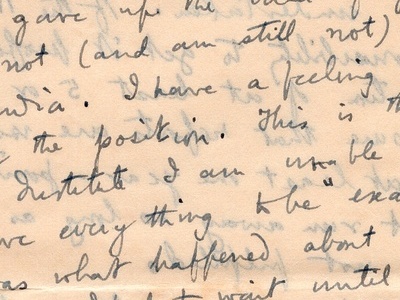 gave up the
not (and am still not)
India. I have a feeling
the position. This is th
Institute I am unable
ve every thing to be "exa
as what happened about
wait until